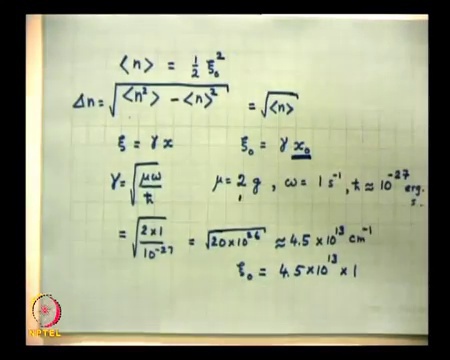 ⟨n⟩ = 1/2 ξ₀²
Δn = √(⟨n²⟩ − ⟨n⟩²) = √⟨n⟩
ξ = γ x ξ₀ = γ x₀
γ = √(μω/ħ) μ = 2 g, ω = 1 s⁻¹, ħ ≈ 10⁻²⁷ erg. s.
= √(2×1/10⁻²⁷) = √(20×10²⁶) ≈ 4.5 × 10¹³ cm⁻¹
ξ₀ = 4.5×10¹³ × 1
NPTEL